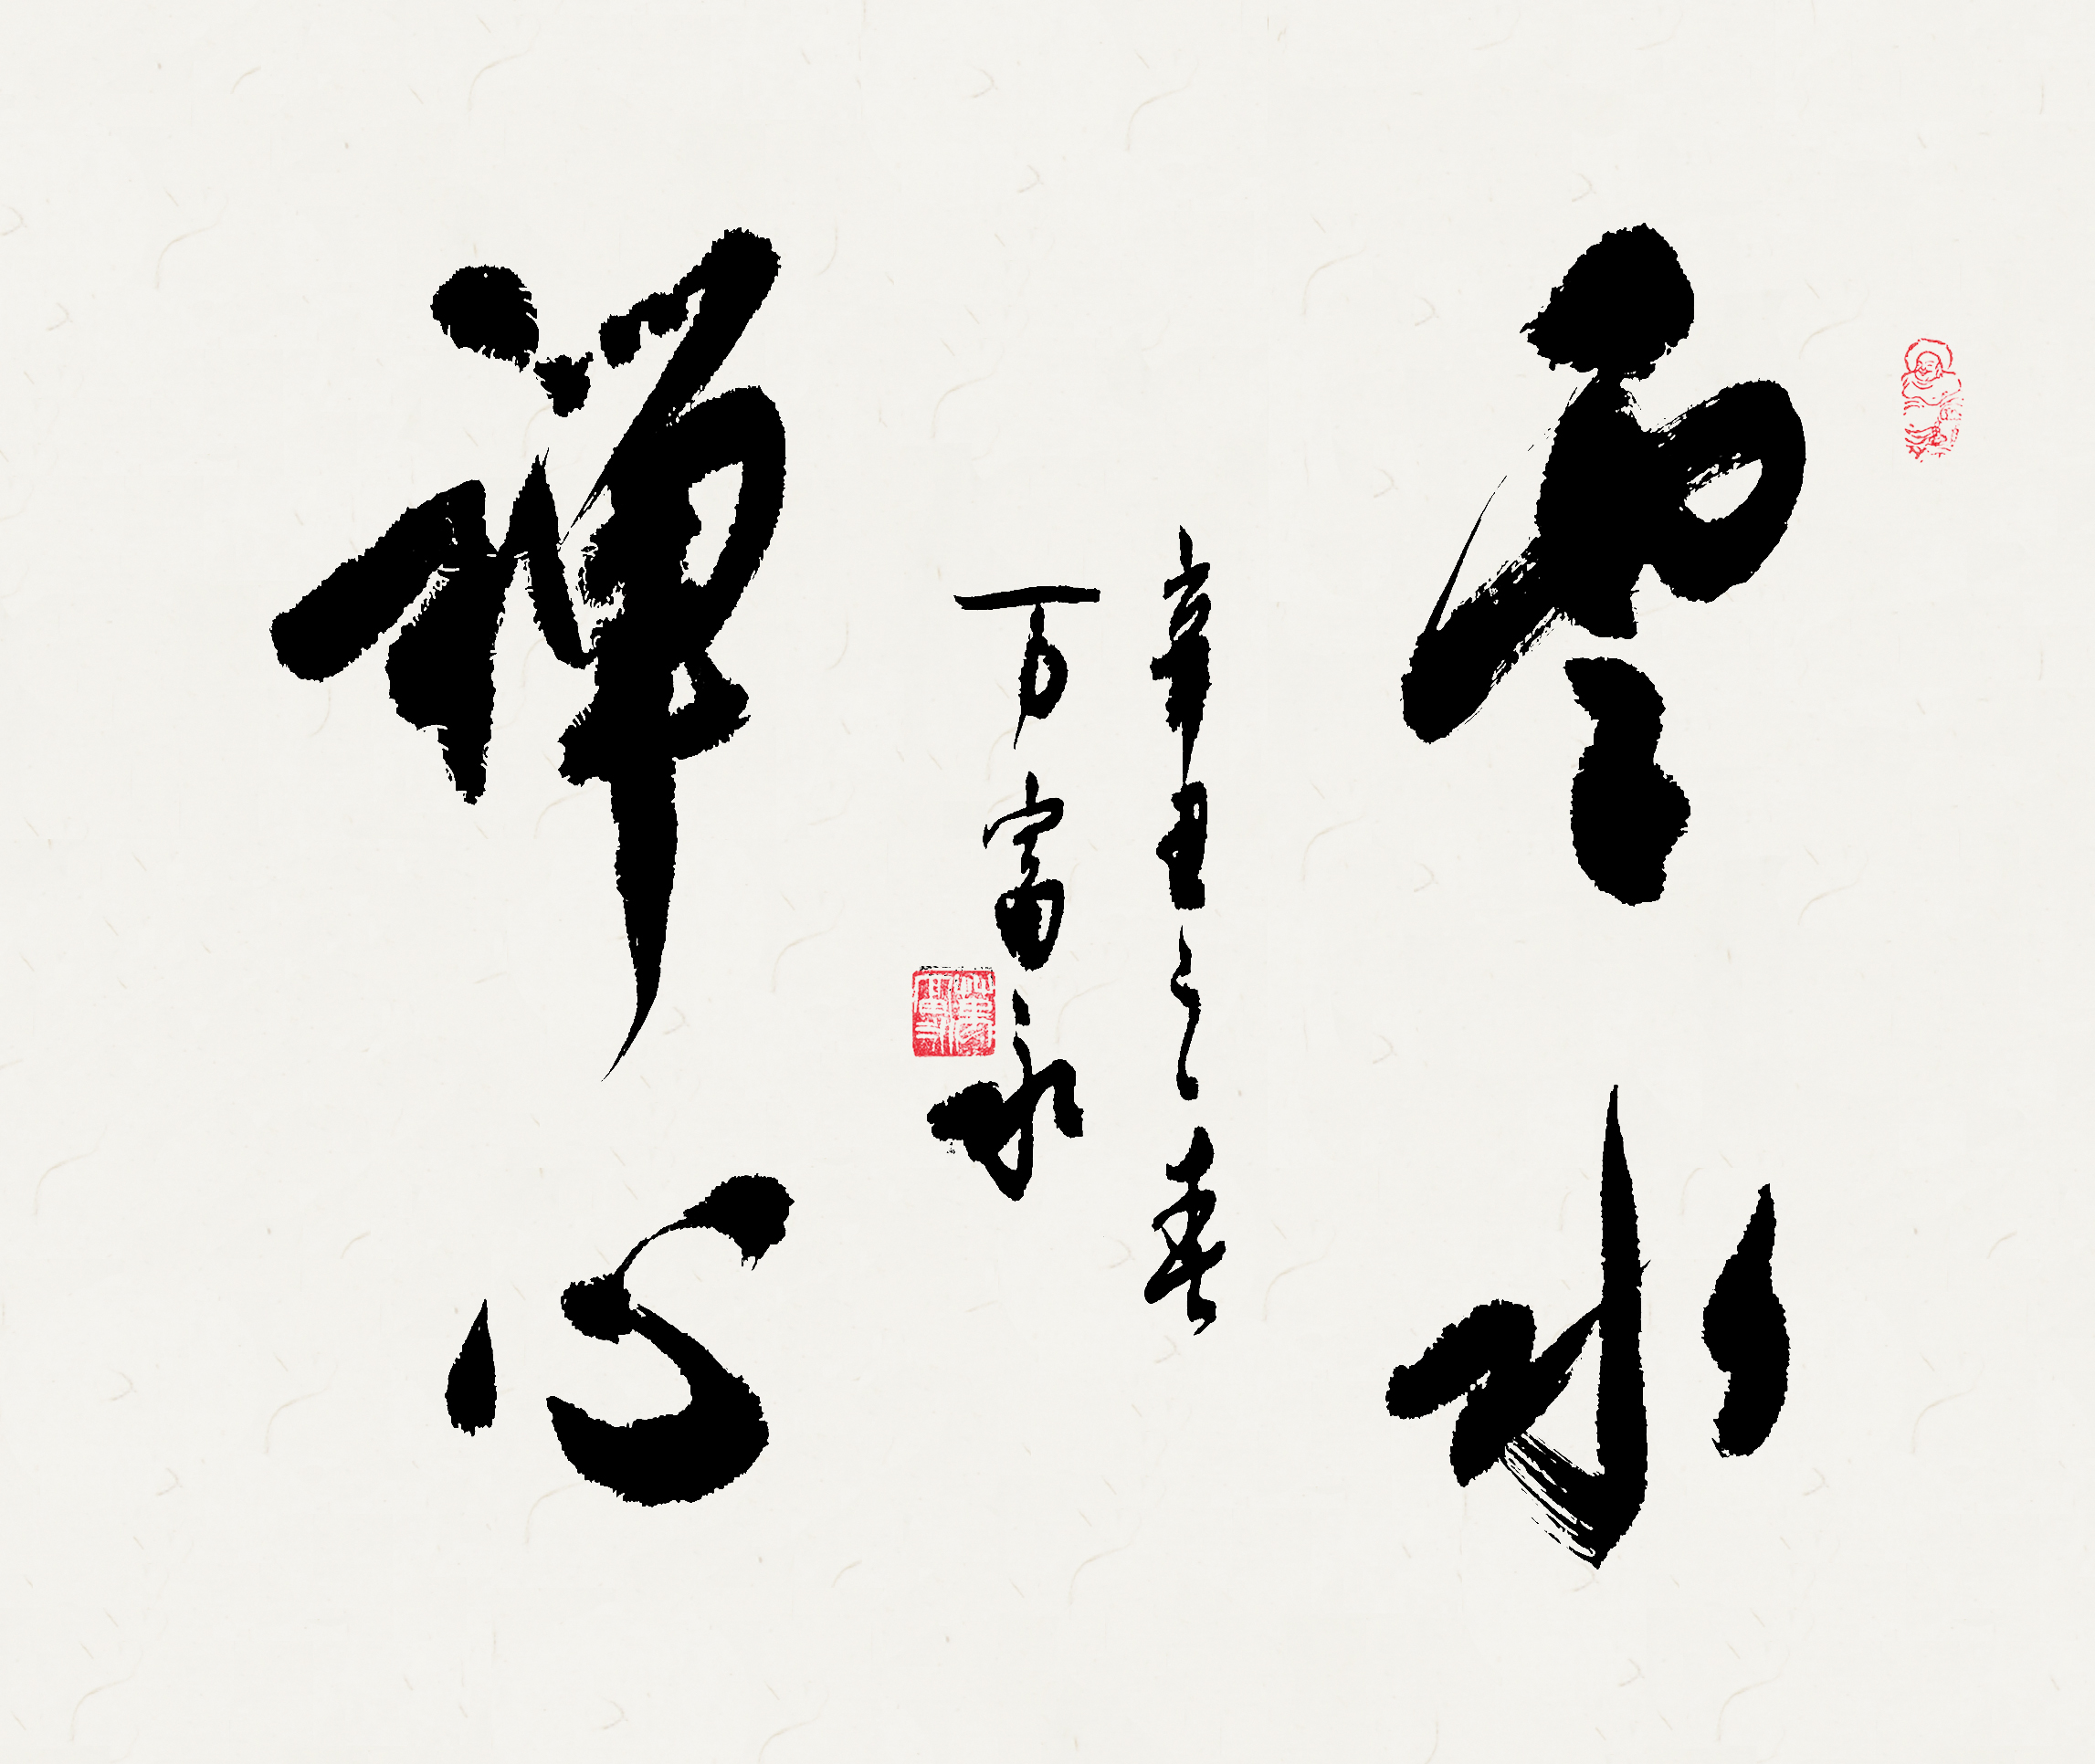 雲水
禅心
辛丑之春
万富永